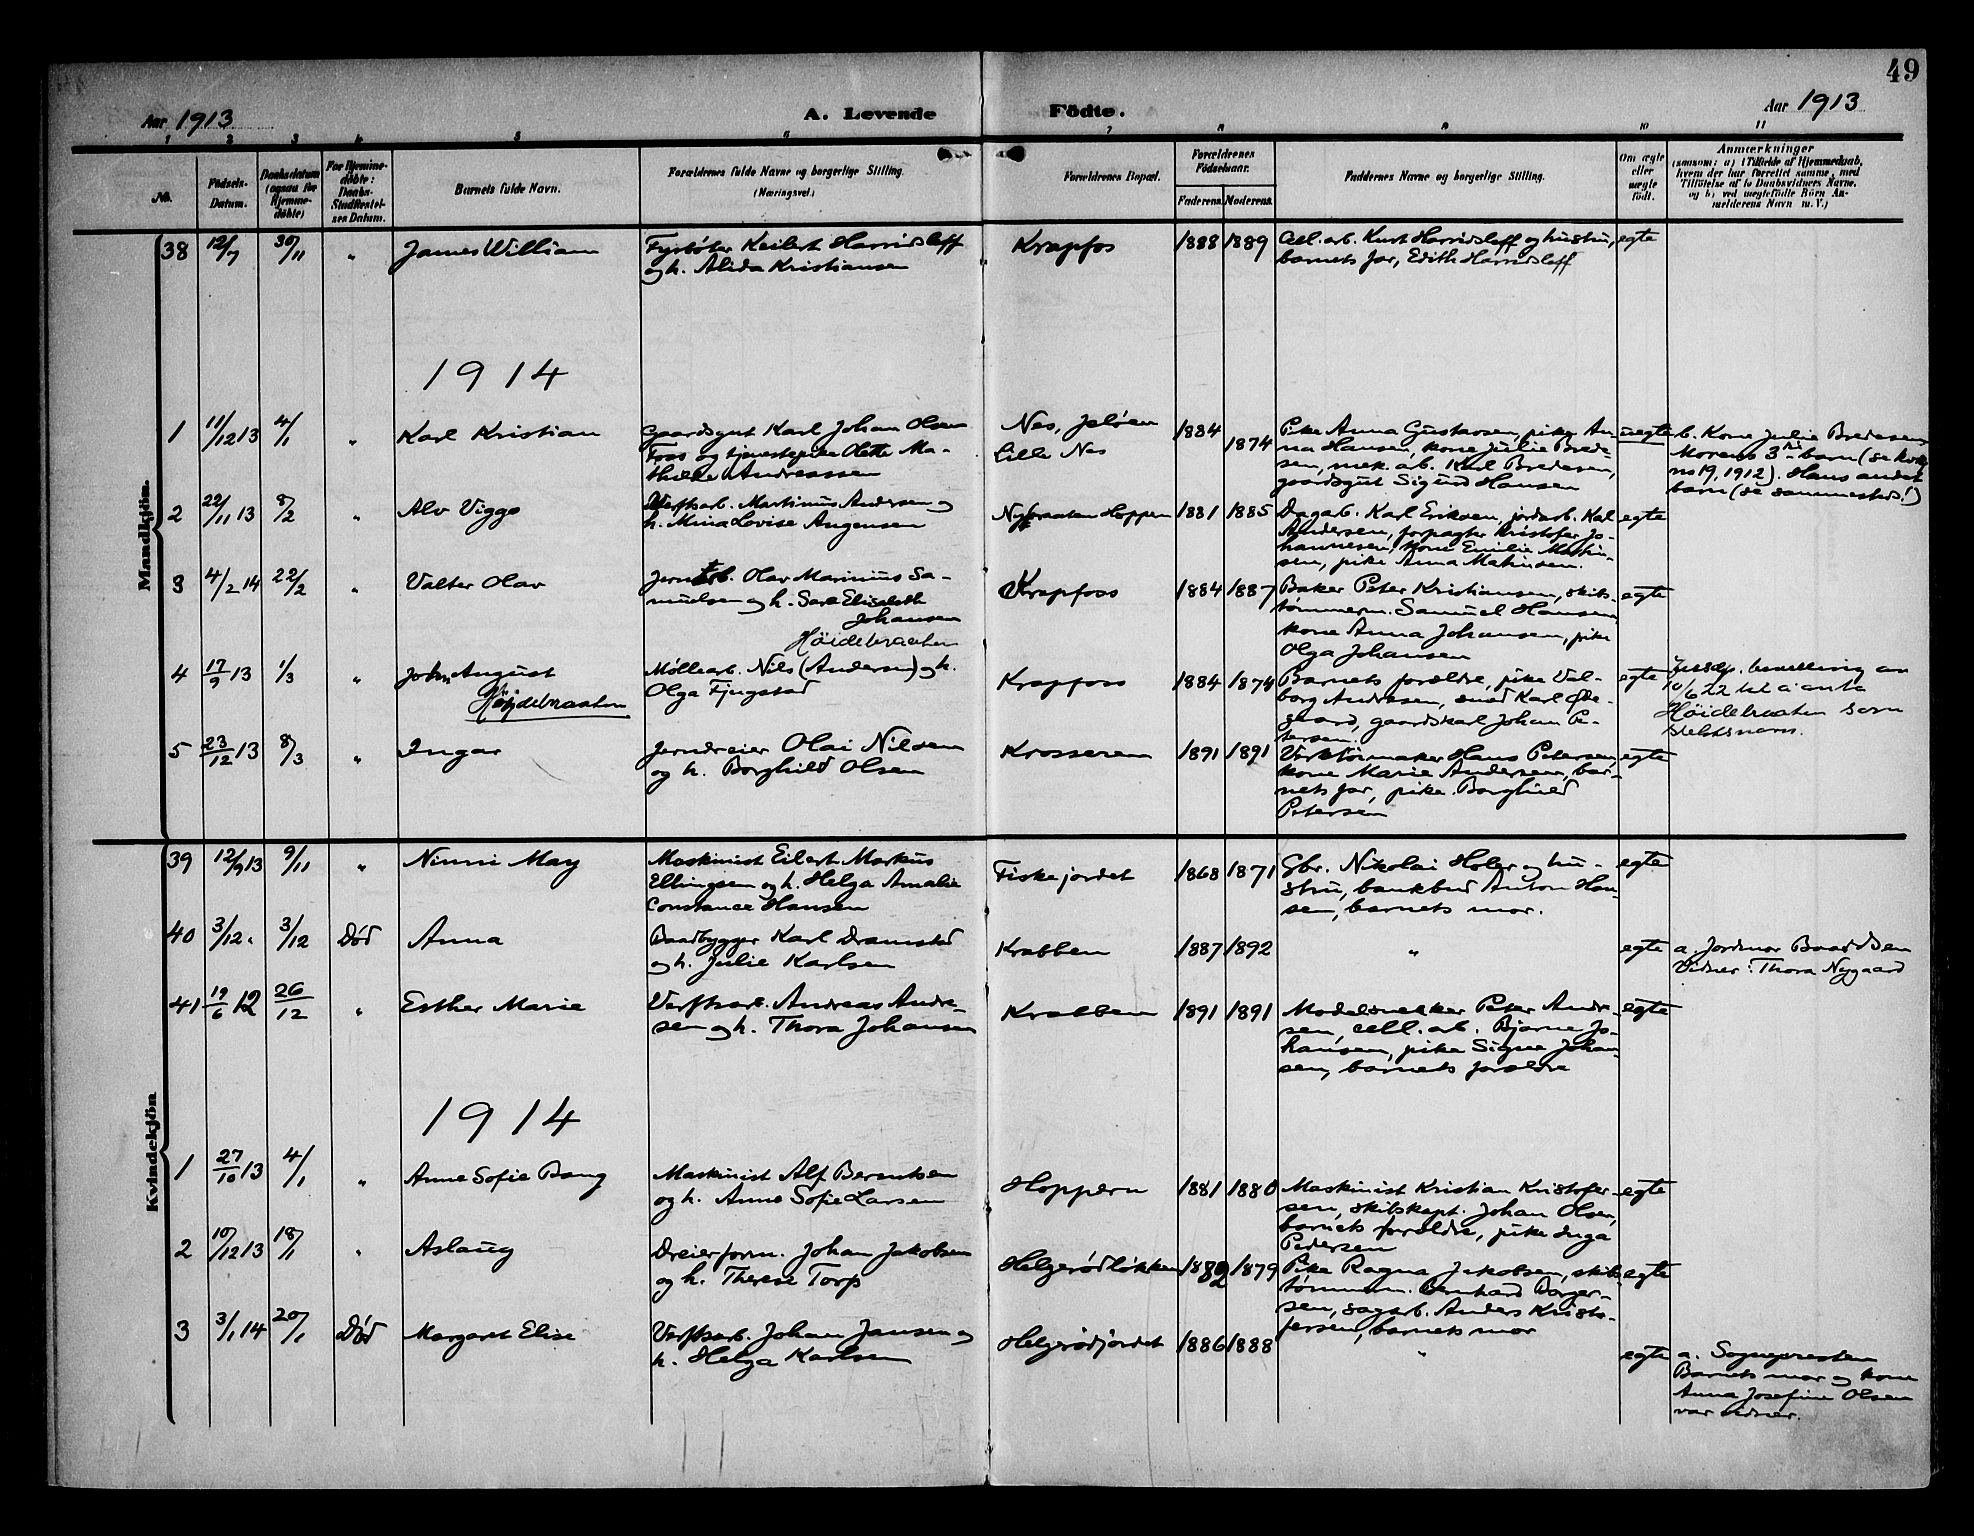 49
Aar 1913
A. Levende
Födte.
Aar 1913
1 2 3 4 5 6 7 8 9 10 11
No.
Födsels-
Datum.
Daabsdatum
(ogsaa for
Hjemme-
döbte)
For Hjemme-
döbte:
Daabs-
Stadfæstel-
ses Datum.
Barnets fulde Navn.
Forældrenes fulde Navne og borgerlige Stilling.
(Næringsvei.)
Forældrenes Bopæl.
Forældrenes
Födselsaar.
Faderens. Moderens.
Faddernes Navne og borgerlige Stilling.
Om ægte
eller
uægte
født.
Anmærkninger
(saasom: a) i Tilfælde af Hjemmedaab,
hvem der har forrettet samme, med
Tilföielse af to Daabsvidners Navne,
og b) ved uægtefödte Börn An-
melderens Navn m. V.)
Mandkjön.
38 12/7 30/11 " James William
Fyrbøter Keilert Harridsleff
og h. Alida Kristiansen
Krapfos
1888 1889
Cell. arb. Kurt Harridsleff og hustru,
barnets far, Edith Harridsleff
egte
1914
1 11/12 13 4/1 " Karl Kristian
Gaardsgut Karl Johan Olsen
Foss og tjenestepike Olette Ma-
thilde Andreassen
Nes, Jeløen
Lille Nes
1884 1874
Pike Anna Gustavsen, pike An-
na Hansen, kone Julie Brede-
sen, mek. arb. Karl Bredesen,
gaardsgut Sigurd Hansen
uegte
b. Kone Julie Bredesen
Morens 3die barn (se kvk
no 19, 1912). Hans andet
barn (se sammesteds!)
2 22/11 13 8/2 " Alv Viggo
Verftsarb. Martinus Andersen og
h. Mina Lovise Angensen
Nybraaten Hoppern
1881 1885
Dagarb. Karl Eriksen, jordarb. Kal
Andersen, forpagter Kristofer Jo-
hannesen, kone Emilie Martin-
sen, pike Anna Mathisen.
egte
3 4/2 14 22/2 " Valter Olav
Jernarb. Olav Marinius Sa-
muelsen og h. Sara Elisabeth
Johansen
Krapfoss
1884 1887
Baker Peter Kristiansen, skibs-
tømmerm. Samuel Hansen
kone Anna Johansen, pike
Olga Johansen
egte
Høidebraaten
4 17/9 13 1/3 " John August
Høidebraaten
Møllearb. Nils (Andersen) og h.
Olga Fjugstad
Krapfoss
1884 1874
Barnets forældre, pike Val-
borg Andresen, smed Karl Øde-
gaard, gaardskarl Johan Pe-
tersen.
egte
Jussdp. bevilling av
10/6 22 til å anta
Høidebraaten som
slektsnavn.
5 23/12 13 8/3 " Ingar
Jerndreier Olai Nilsen
og h. Borghild Olsen
Krosseren
1891 1891
Verktøimaker Hans Petersen,
kone Marie Andersen, bar-
nets far, pike Borghild
Petersen
egte
Kvindekjön
39 12/9 13 9/11 " Ninni May
Maskinist Eilert Markus
Ellingsen og h. Helga Amalie
Constance Hansen
Fiskejordet
1868 1871
Gbr. Nikolai Holer og hu-
stru, bankbud Anton Han-
sen, barnets mor.
egte
40 3/12 " 3/12 Død Anna
Baadbygger Karl Dramstad
og h. Julie Karlsen
Krabben
1887 1892
"
egte
a. Jordmor Baardsen
Vidner: Thora Nygaard
41 19/6 12 26/12 " Esther Marie
Verftsarb. Andreas Andre-
sen og h. Thora Johansen
Krabben
1891 1891
Modelsnekker Peter Andr-
sen, cell. arb. Bjarne Jo-
hansen, pike Signe Johan-
sen, barnets forældre
egte
1914
1 27/10 13 4/1 " Anne Sofie Bang
Maskinist Alf Berentsen
og h. Anne Sofie Larsen
Hoppern
1881 1880
Maskinist Kristian Kristofer-
sen, skibskapt. Johan Olsen,
barnets forældre, pike Inga
Pedersen
egte
2 10/12 13 18/1 " Aslaug
Dreierform. Johan Jakobsen
og h. Therese Torp
Helgerødløkken
1882 1879
Pike Ragna Jakobsen, skibs
tømmerm. Bernhard Borger-
sen, sagarb. Anders Kristo-
fersen, barnets mor
egte
3 3/1 14 20/1 Død Margaret Elise
Verftsarb. Johan Jansen og
h. Helga Karlsen
Helgerødjordet
1886 1888
"
egte
a. Sognepresten
Barnets mor og kone
Anna Josefine Olsen
var vidner.